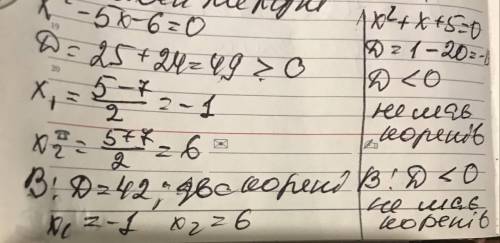 x² - 5x - 6 = 0
D = 25 + 24 = 49 > 0
x₁ = (5-7)/2 = -1
x₂ = (5+7)/2 = 6
В: D = 42; два корені
x₁ = -1 x₂ = 6
x² + x + 5 = 0
D = 1 - 20 =
D < 0
не має
коренів
В: D < 0
не має
коренів